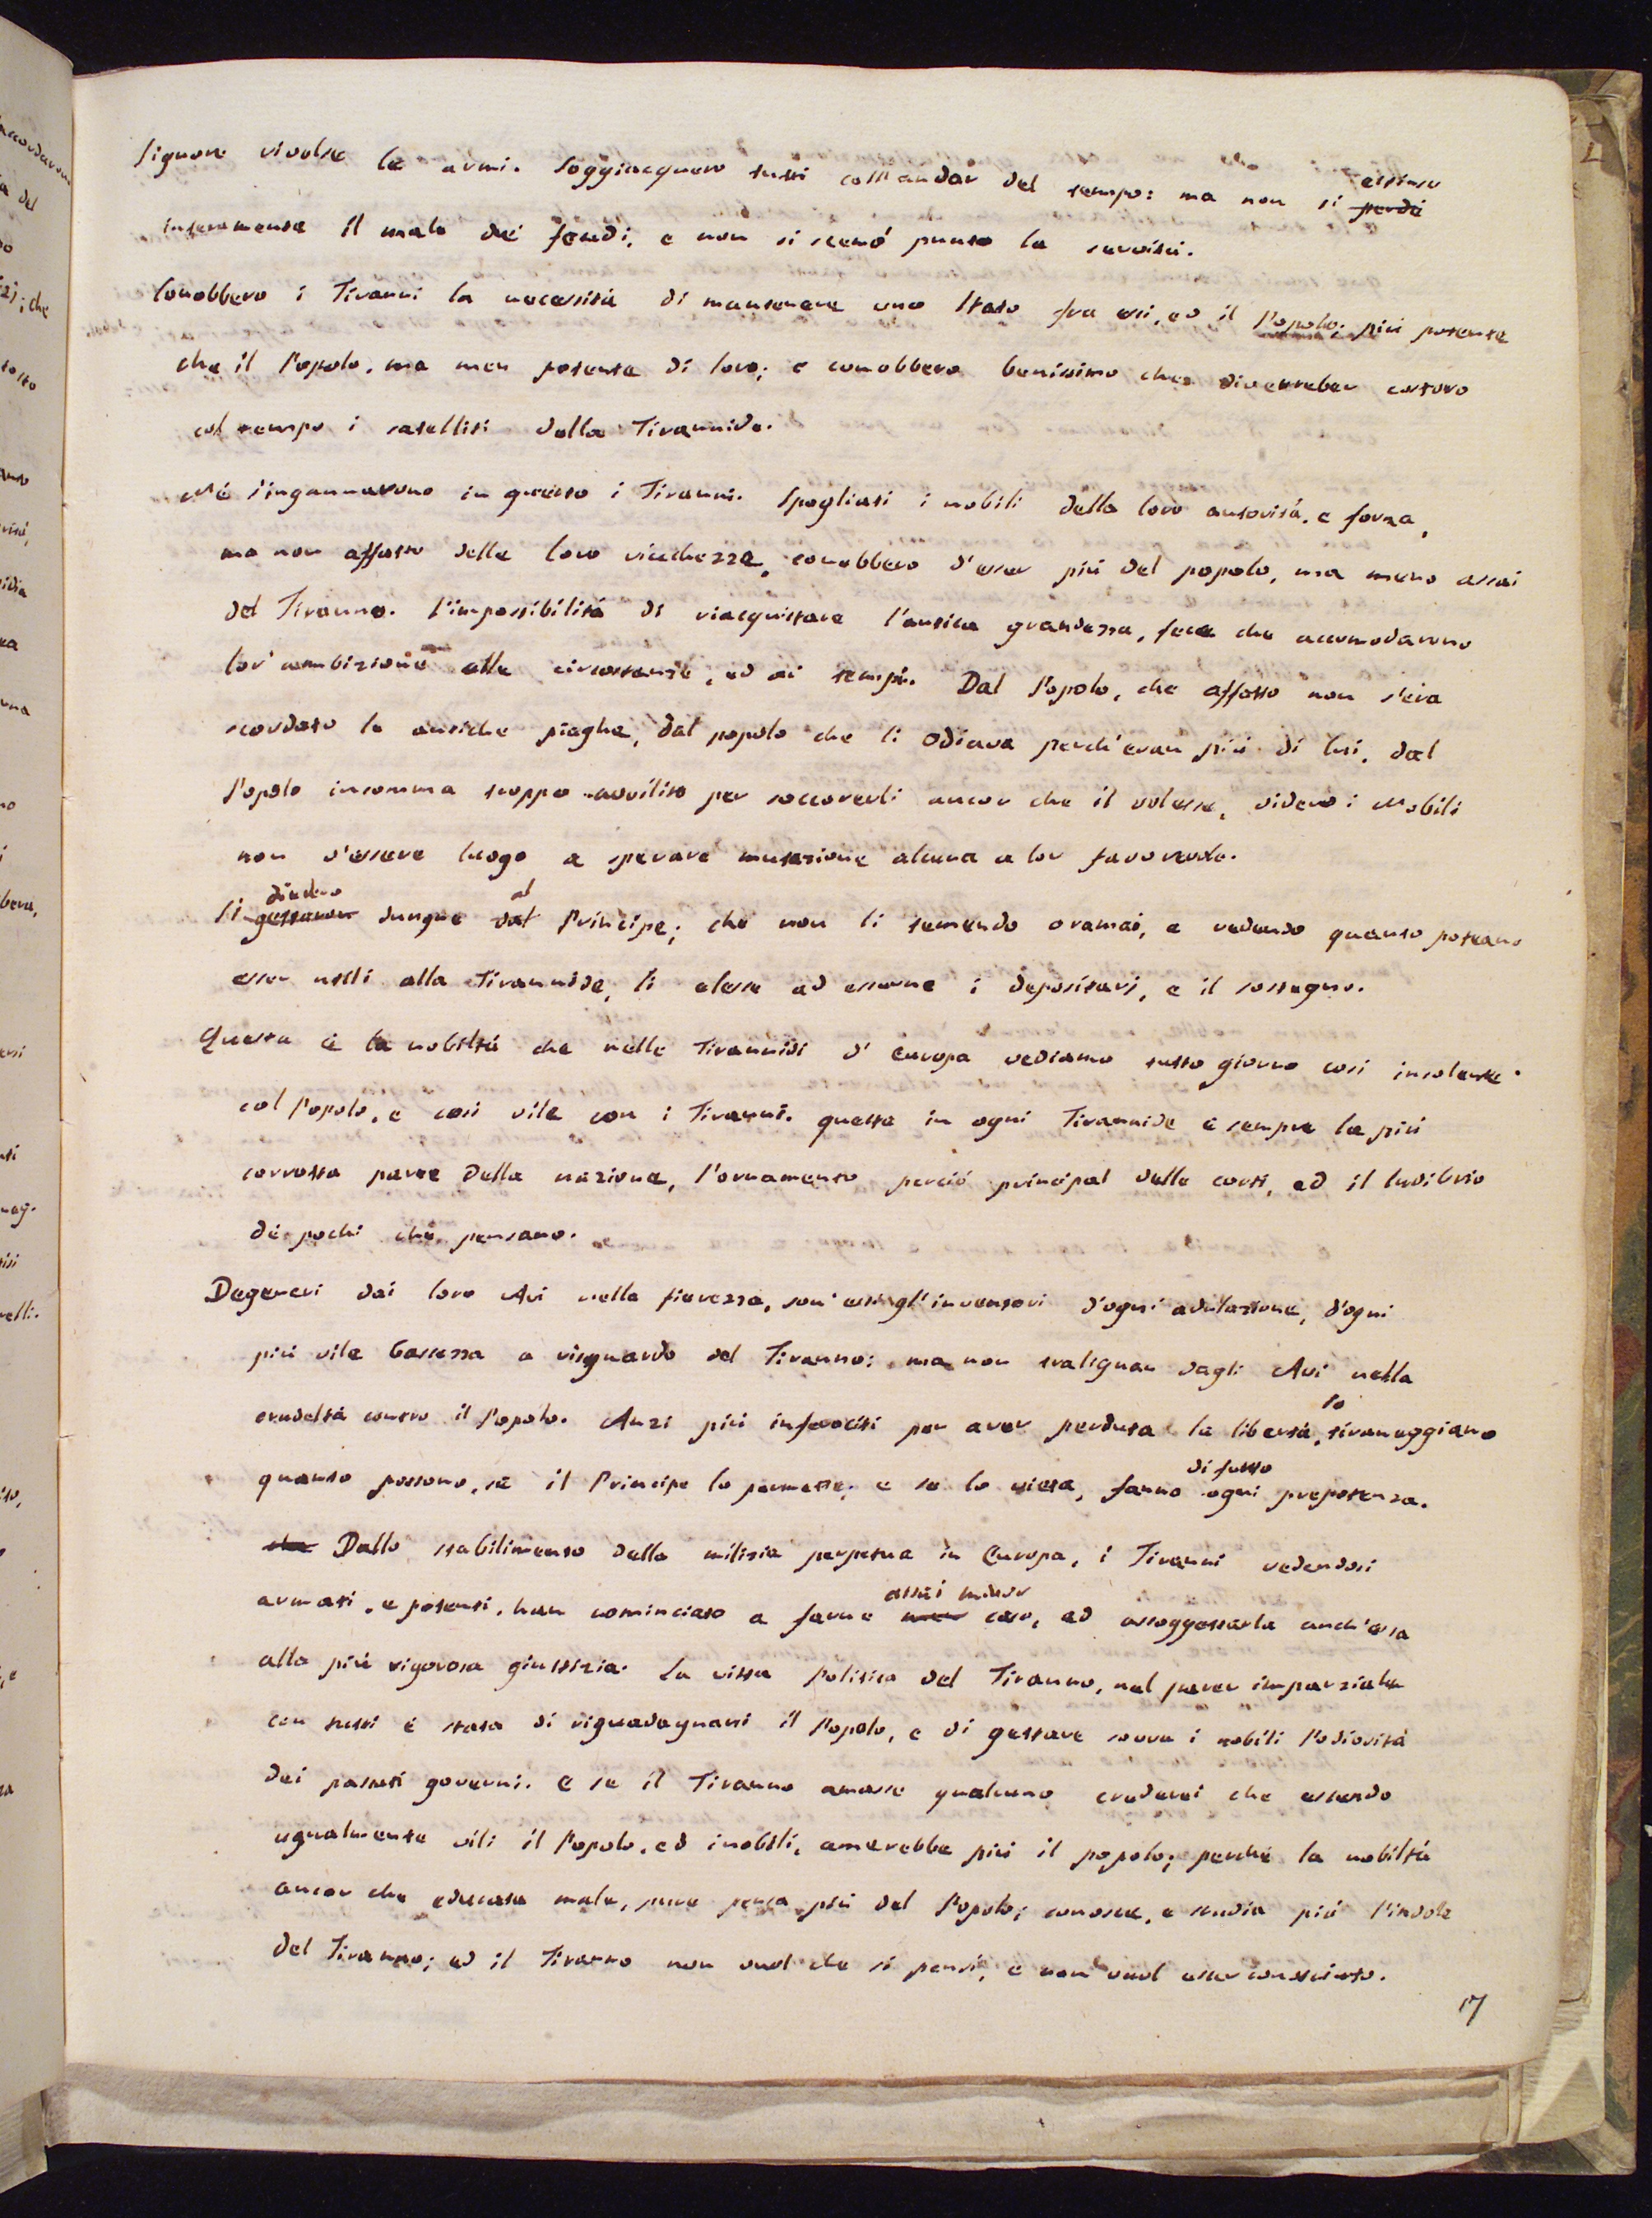 Signore rivolse le armi. Soggiacquero tutti coll'andar del tempo: ma non si estinse perdé
interamente il male dei feudi, e non si scemó punto la servitú.
Conobbero i Tiranni la necessitá di mantenere uno Stato fra essi, ed il Popolo; piú potente
che il Popolo, ma men potente di loro; e conobbero benissimo che diverrebber costoro
col tempo i satelliti della Tirannide.
Né s'ingannarono in questo i Tiranni. Spogliati i nobili della loro autoritá, e forza,
ma non affatto delle loro ricchezze, conobbero d'esser piú del popolo, ma meno assai
del Tiranno. L'impossibilitá di riacquistare l'antica grandezza, fece che accomodarono
lor' ambizione alle circostanze, ed ai tempi. Dal Popolo, che affatto non s'era
scordato le antiche piaghe, dal popolo che li odiava perch'eran piú di lui, dal
Popolo insomma troppo avvilito per soccorerli ancor che il volesse, videro i Nobili
non v'essere luogo a sperare mutazione alcuna a lor favorevole.
Si diedero gettaron dunque al dal Principe; che non li temendo oramai, e vedendo quanto poteano
esser utili alla Tirannide, li elesse ad esserne i depositarj, e il sostegno.
Questa é la nobiltá che nelle Tirannidi d'Europa vediamo tutto giorno cosí insolente
col Popolo, e cosí vile con i Tiranni. questa in ogni Tirannide é sempre la piú
corrotta parte della nazione, l'ornamento perció principal delle corti, ed il ludibrio
de pochi che pensano.
Degeneri dai loro Avi nella fierezza, son' essi gl'inventori d'ogni adulazione, d'ogni
piú vile bassezza a risguardo del Tiranno; ma non tralignan dagli Avi nella
crudeltá contro il Popolo. Anzi piú inferociti per aver perduta la libertá, lo tiraneggiano
quanto possono, se il Principe lo permette; e se lo vieta, fanno di furto ogni prepotenza.
che Dallo stabilimento della milizia perpetua in Europa, i Tiranni vedendosi
armati, e potenti, han cominciato a farne assai minor men caso, ed assoggettarla anch'essa
alla piú rigorosa giustizia. La vista Politica del Tiranno, nel parer imparziale
con tutti é stata di riguadagnarsi il Popolo, e di gettare sovra i nobili l'odiositá
dei passati governi. e se il Tiranno amasse qualcuno crederei che essendo
ugualmente vili il Popolo, ed i nobili, amerebbe piú il popolo; perché la nobiltá
ancor che educata male, pure pensa piú del Popolo; conosce, e studia piú l'indole
del Tiranno; ed il Tiranno non vuol che si pensi, e non vuol esser conosciuto.
17